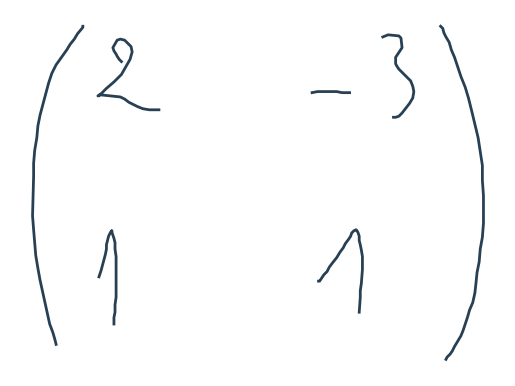 2 -3
1 1